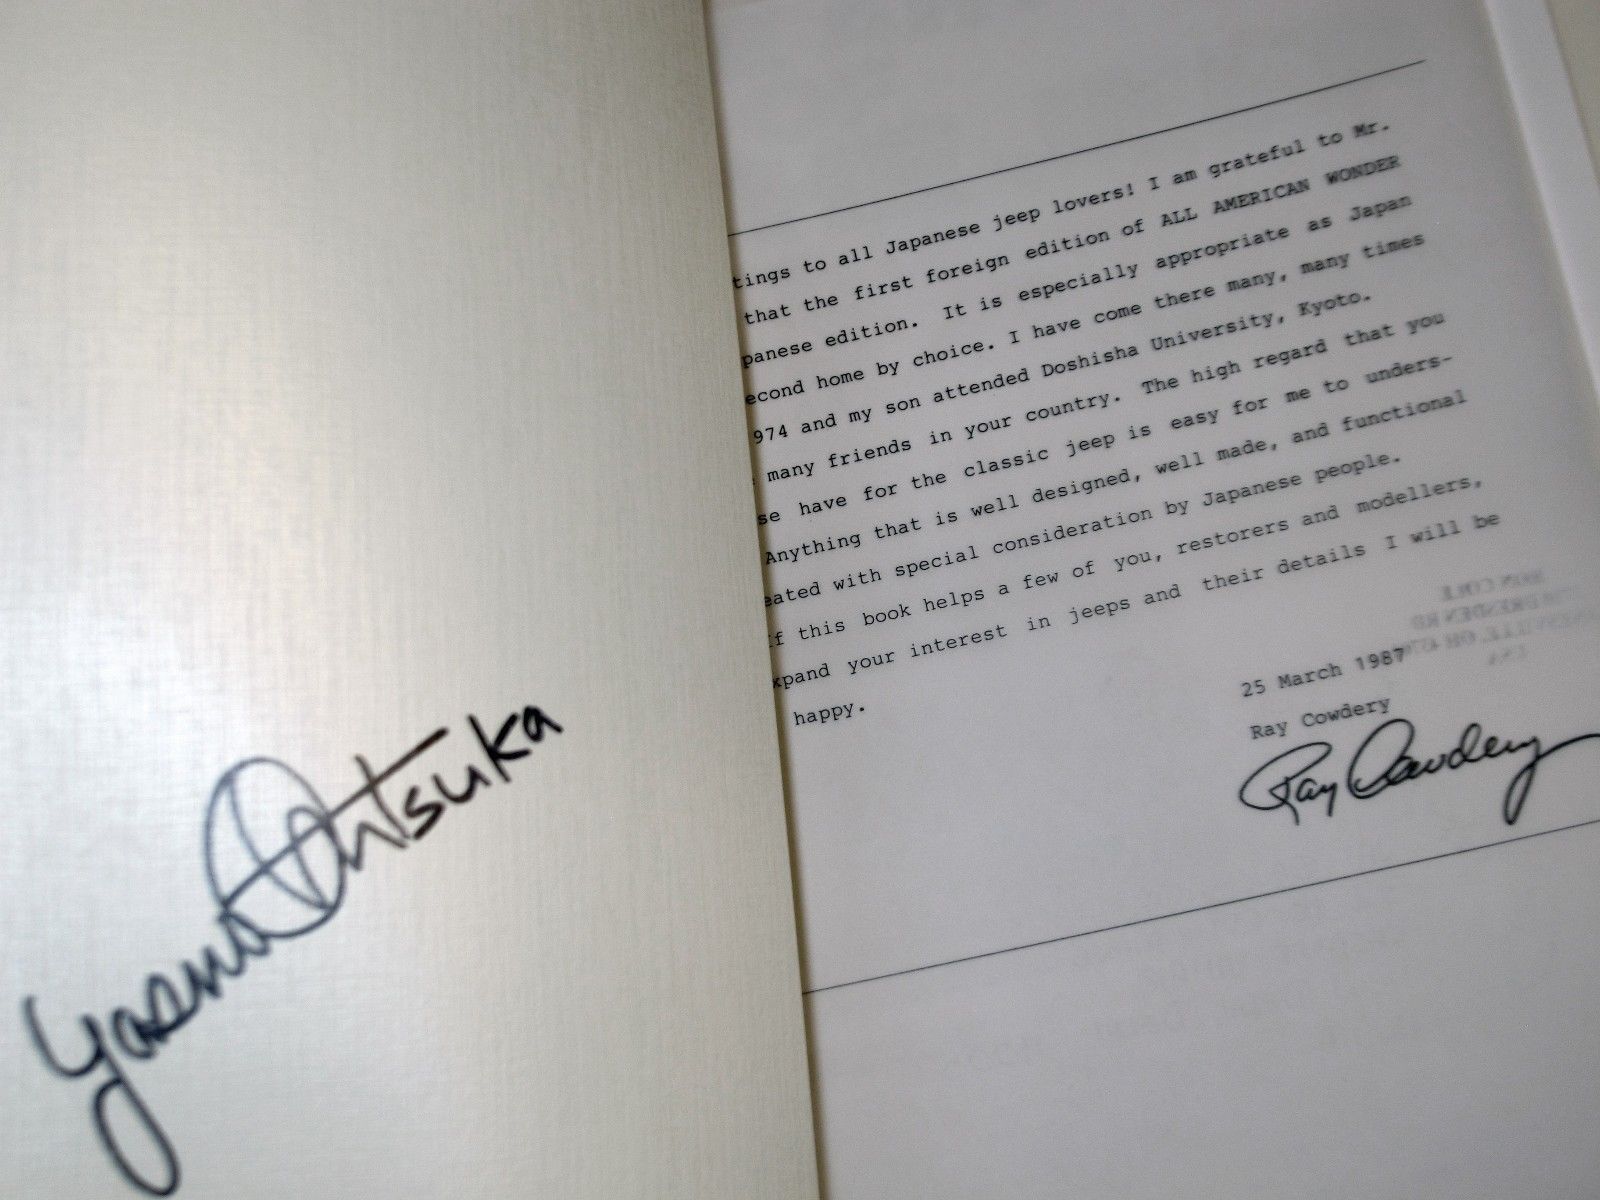 Yasuo Ohtsuka
tings to all Japanese jeep lovers! I am grateful to Mr.
that the first foreign edition of ALL AMERICAN WONDER
panese edition. It is especially appropriate as Japan
econd home by choice. I have come there many, many times
974 and my son attended Doshisha University, Kyoto.
many friends in your country. The high regard that you
se have for the classic jeep is easy for me to unders-
Anything that is well designed, well made, and functional
eated with special consideration by Japanese people.
If this book helps a few of you, restorers and modellers,
xpand your interest in jeeps and their details I will be
happy.
25 March 1987
Ray Cowdery
Ray Cowdery